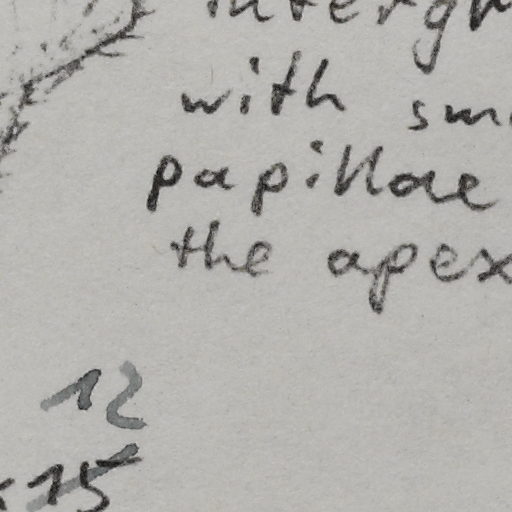 with
papillae
the apex
12
15